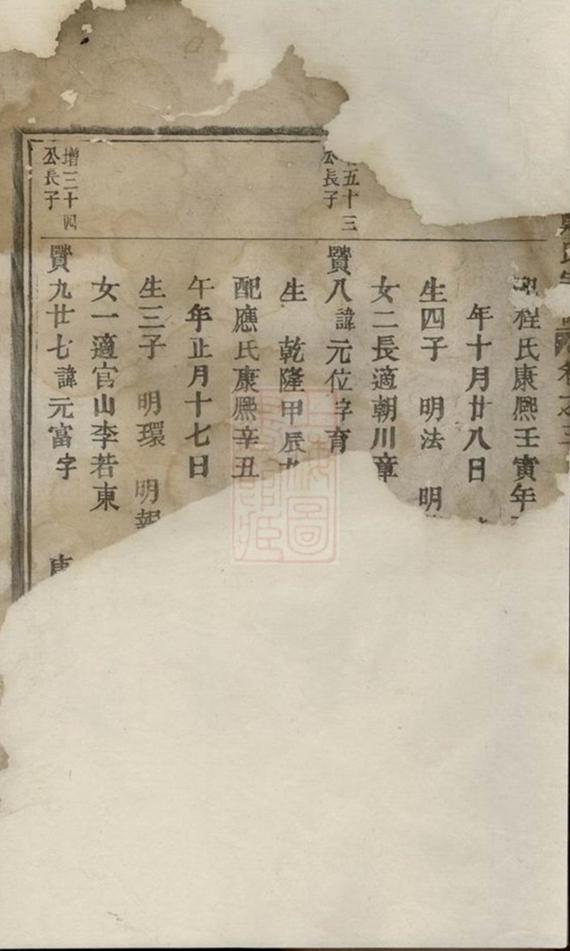 程氏康熈壬寅年
年十月廿八日
生四子 明法 明
女二長適朝川章
五十三
公長子
贒八諱元位字育
生 乾隆甲辰
配應氏康熈辛丑
午年正月十七日
生三子 明環 明報
女一適官山李若東
增三十四
公長子
贒九廿七諱元富字